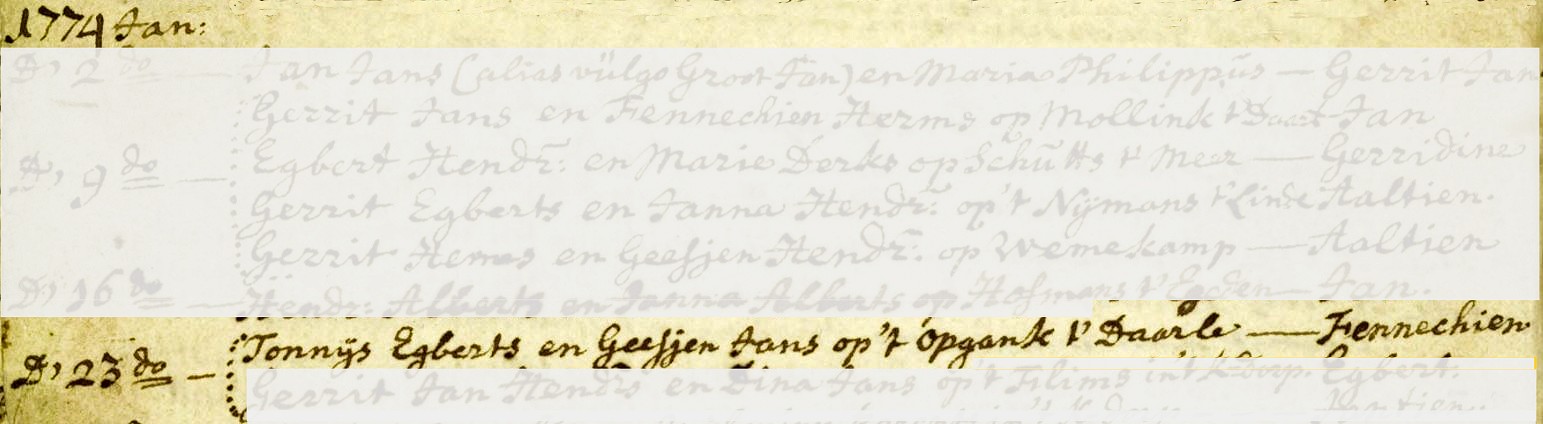 1774 Jan:
D, 2 do — Jan Jans (alias vulgo Groot Jan) en Maria Philippus — Gerrit Jan
Gerrit Jans en Fennechien Herms op Mollink t' Daarl Jan
D, 9 do — Egbert Hendr: en Marie Derks op Schutts t' Meer — Gerridine
Gerrit Egberts en Janna Hendr: op't Nijmans t' Linde Aaltien.
Gerrit Hermes en Geesjen Hendr: op Wemekamp — Aaltien
D, 16 do — Hendr: Alberts en Janna Alberts op Hofmans t' — Jan.
D, 23 do — Tonnijs Egberts en Geesjen Jans op't Opgank t' Daarle — Fennechien
Gerrit Jan Hendrs en Dina Jans op't Flims in't K:dorp. Egbert: